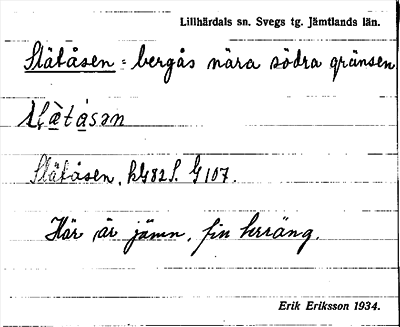 Lillhärdals sn. Svegs tg. Jämtlands län.
Slätåsen = bergås nära södra gränsen.
Slätåsen, G 107.
Här är jämn, fin terräng.
Erik Eriksson 1934.